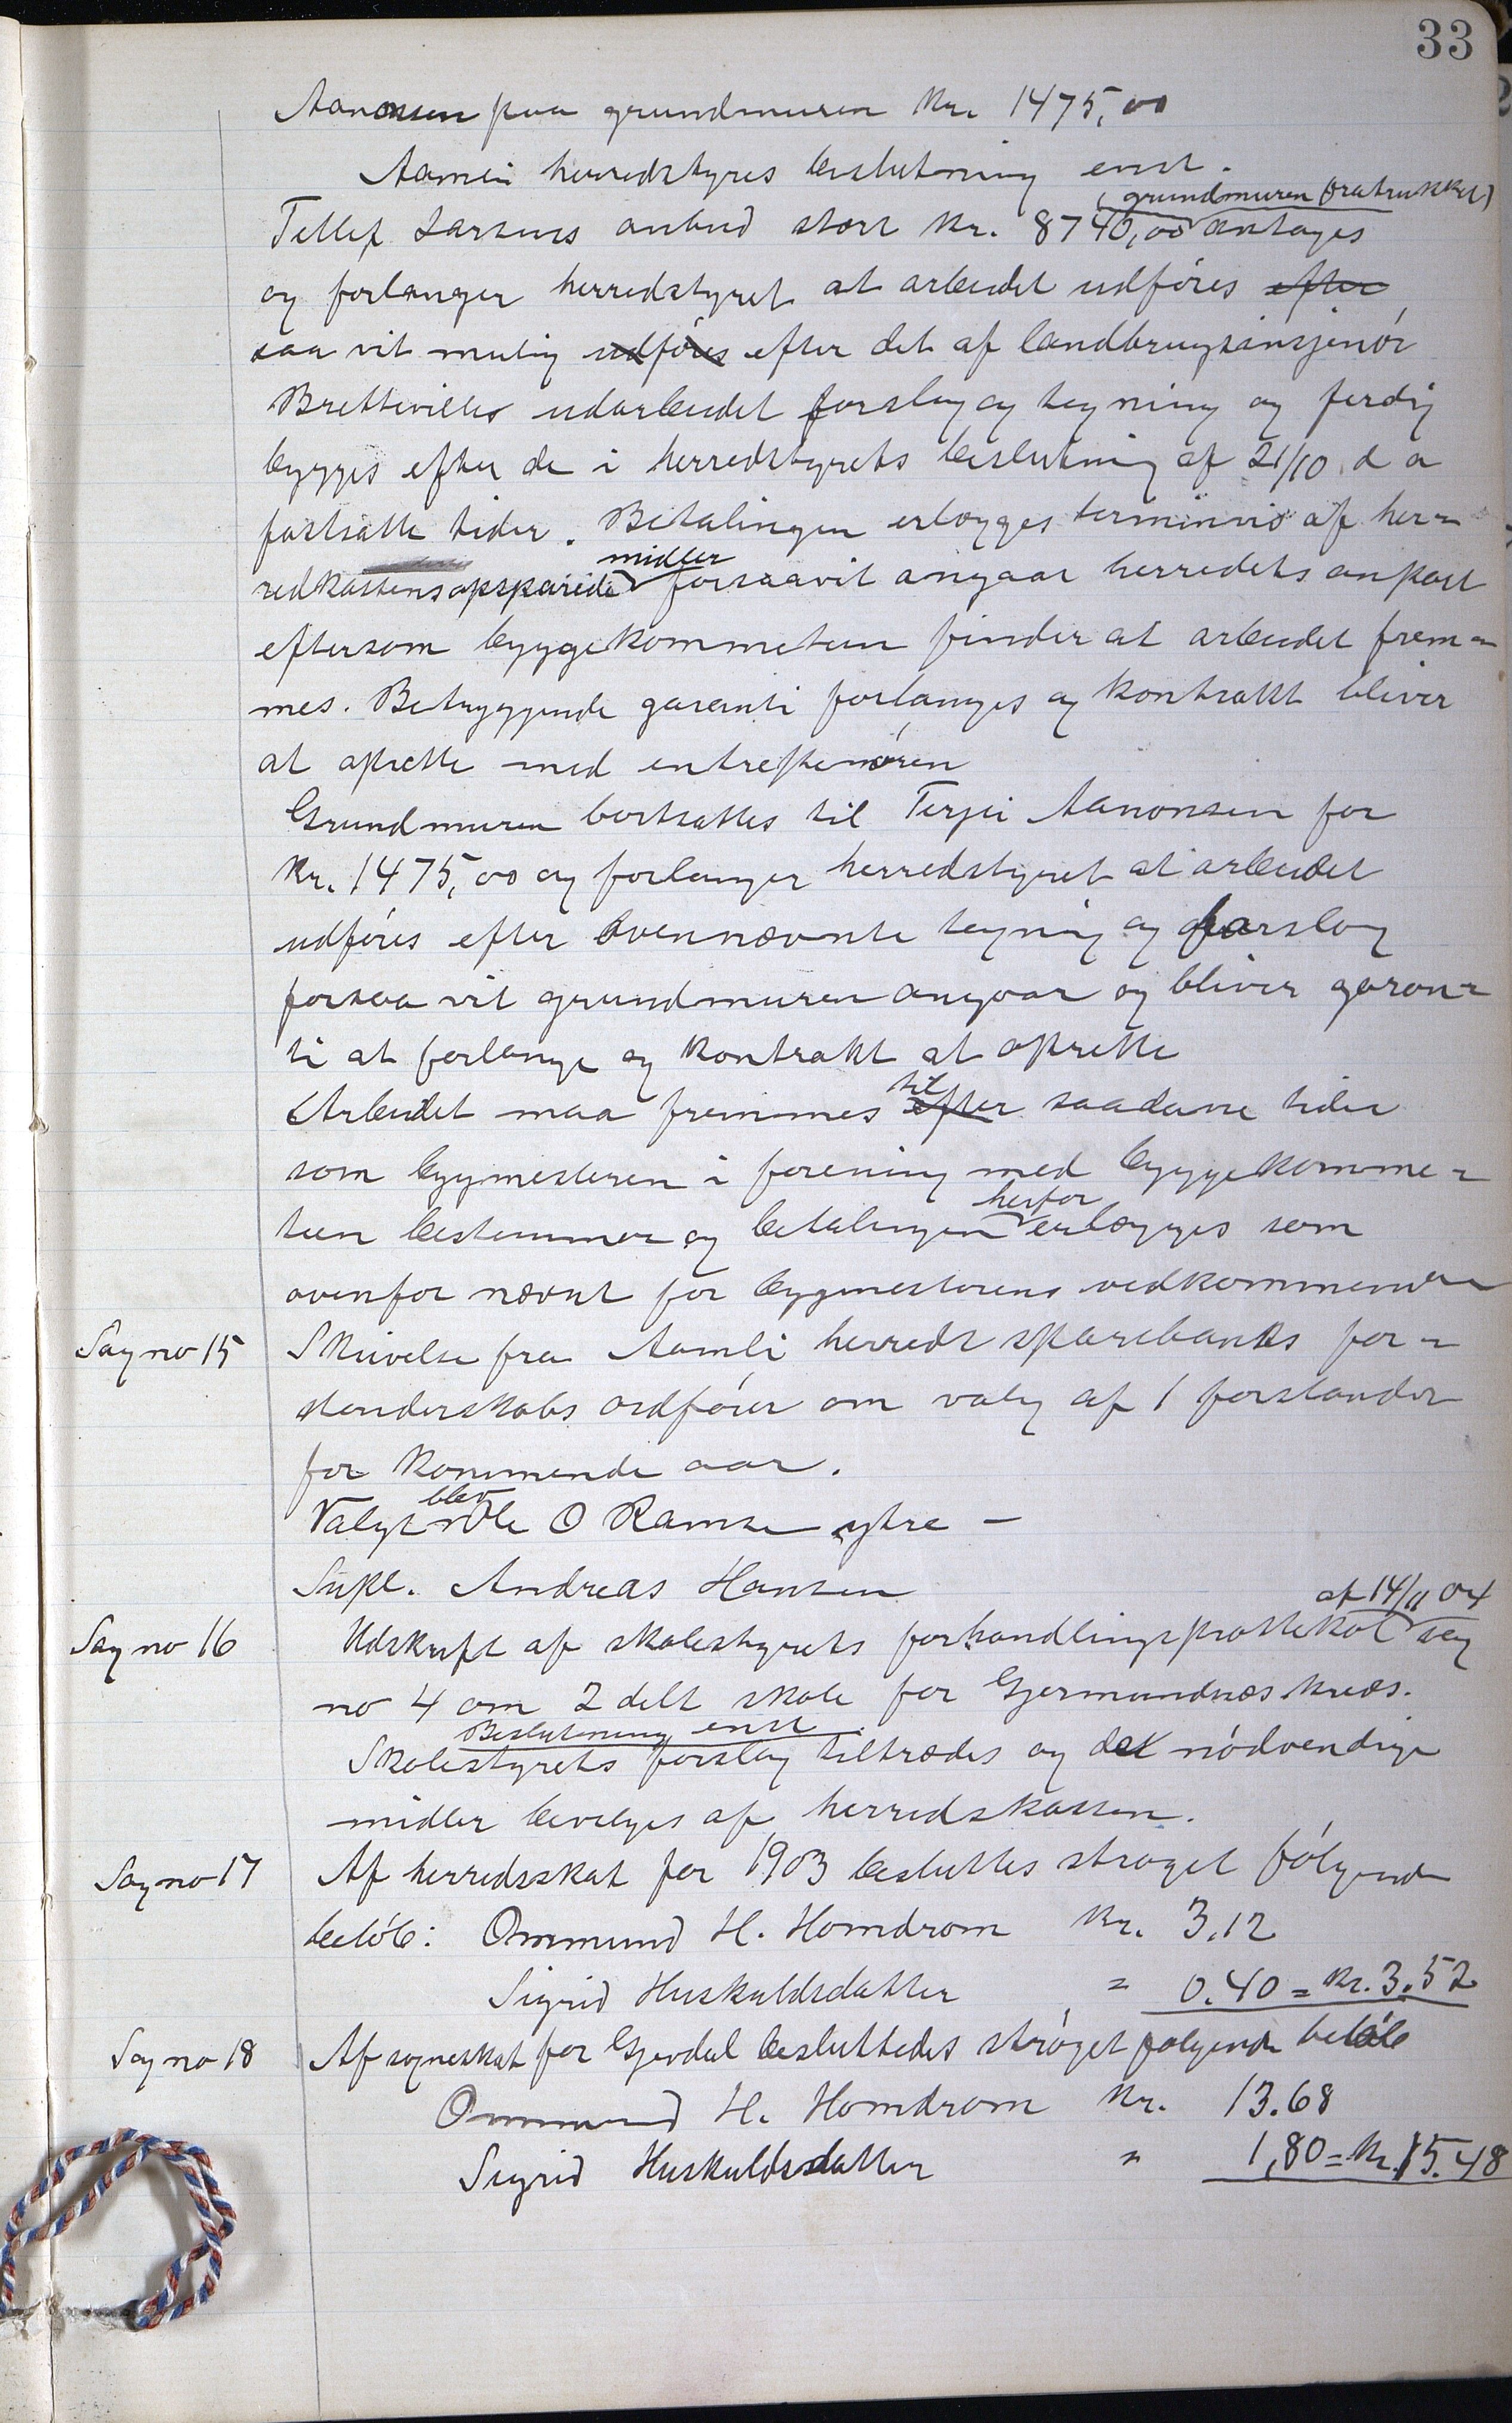 33
Aanonsen paa grundmuren Kr. 1475,00
Aamli herredstyres beslutning enst.
(grundmuren fratrukket)
Tellef Larsens anbud stort Kr. 8740,00 antages
og forlanger herredstyret at arbeidet udføres efter
saa vit mulig udføres efter det af landbrugsinsjenør
Brettevilles udarbeidet forslag og tegning og ferdig
bygges efter de i herredstyrets beslutning af 21/10 d a
fastsatte tider. Betalingen erlægges terminvis af her=
midler
redkassens opsparede forsaavit angaar herredets anpart
eftersom byggekommeteen finder at arbeidet frem=
mes. Betryggende garanti forlanges og kontrakt bliver
at oprette med entreprenøren
Grundmuren bortsattes til Terjei Aanonsen for
Kr. 1475,00 og forlanger herredstyret at arbeidet
udføres efter ovennævnte tegning og forslag
forsaa vit grundmuren angaar og bliver garan=
ti at forlange og kontrakt at oprette
til
Arbeidet maa fremmes efter saadanne tider
som bygmesteren i forening med byggekomme=
herfor
teen bestemmer og betalingen erlægges som
ovenfor nævnt for bygmesterens vedkommende
Sag no 15 Skrivelse fra Aamli herreds sparebanks for=
standerskabs ordfører om valg af 1 forstander
for kommende aar.
blev
Valgt Ole O Ramse ytre –
Supl. Andreas Hansen
af 14/11 04
Sag no 16 Udskrift af skolestyrets forhandlingsprottekol sag
no 4 om 2 delt skole for Gjermundnæs kreds.
Beslutning enst.
Skolestyrets forslag tiltrædes og det nødvendige
midler bevilges af herredskassen.
Sag no 17 Af herredsskat for 1903 besluttes strøget følgende
beløb: Ommund H. Homdrom Kr. 3.12
Sigrid Huskuldsdatter " 0.40 = Kr. 3.52
Sag no 18 Af sogneskat for Gjøvdal besluttedes strøget følgende beløb
Ommund H. Homdrom Kr. 13.68
Sigrid Huskuldsdatter " 1,80 = Kr. 15.48